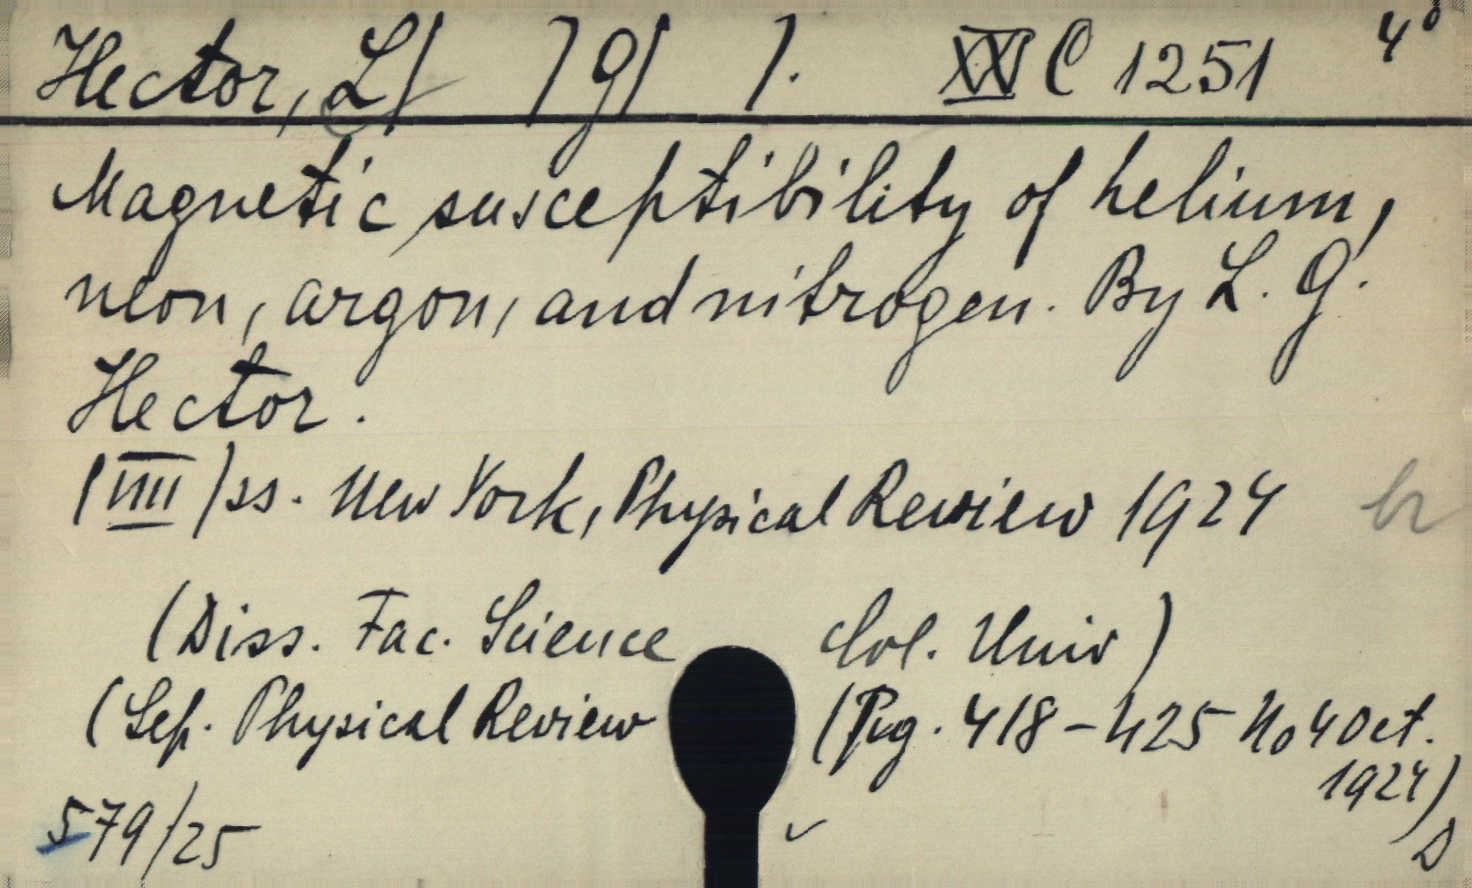 Hector, L/ /G/ /. XXV C 1251 4°
Magnetic susceptibility of helium,
neon, argon, and nitrogen. By L. G.
Hector.
(IIII) ss. New York, Physical Review 1924
(Diss. Fac. Science Col. Univ)
(Sep. Physical Review (Pag. 418-425 No 4 Oct.
1924)
579/25 D